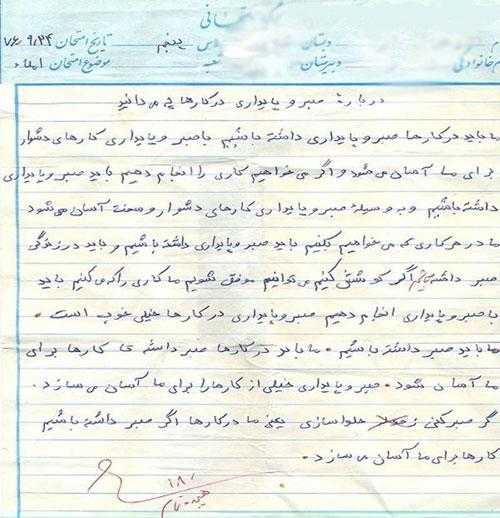 امتحانی
دبستان پنجم تاریخ امتحان ۷۶/۹/۲۴
خانوادگی دبیرستان موضوع امتحان املاء
درباره صبر و پایداری در کارها چه می دانید
ما باید در کارها صبر و پایداری داشته باشیم با صبر و پایداری کارهای دشوار
برای ما آسان می شود و اگر می خواهیم کاری را انجام دهیم باید صبر و پایداری
داشته باشیم و به وسیله صبر و پایداری کارهای دشوار و سخت آسان می شود
ما در هر کاری که می خواهیم بکنیم باید صبر و پایداری داشته باشیم و باید در زندگی
صبر داشته باشیم اگر کوشش کنیم می توانیم موفق شویم ما کاری را که می کنیم باید
با صبر و پایداری انجام دهیم صبر و پایداری در کارها خیلی خوب است .
ما باید صبر داشته باشیم . ما باید در کارها صبر داشته تا کارها برای
ما آسان شود . صبر و پایداری خیلی از کارها را برای ما آسان می سازد .
گر صبر کنی ز حلوا سازی یعنی ما در کارها اگر صبر داشته باشیم
کارها برای ما آسان می سازد .
۱۸/